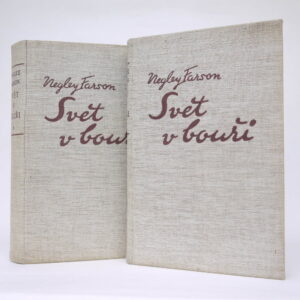 Negley Farson
Svět
v bouři
Negley Farson
Svět
v bouři